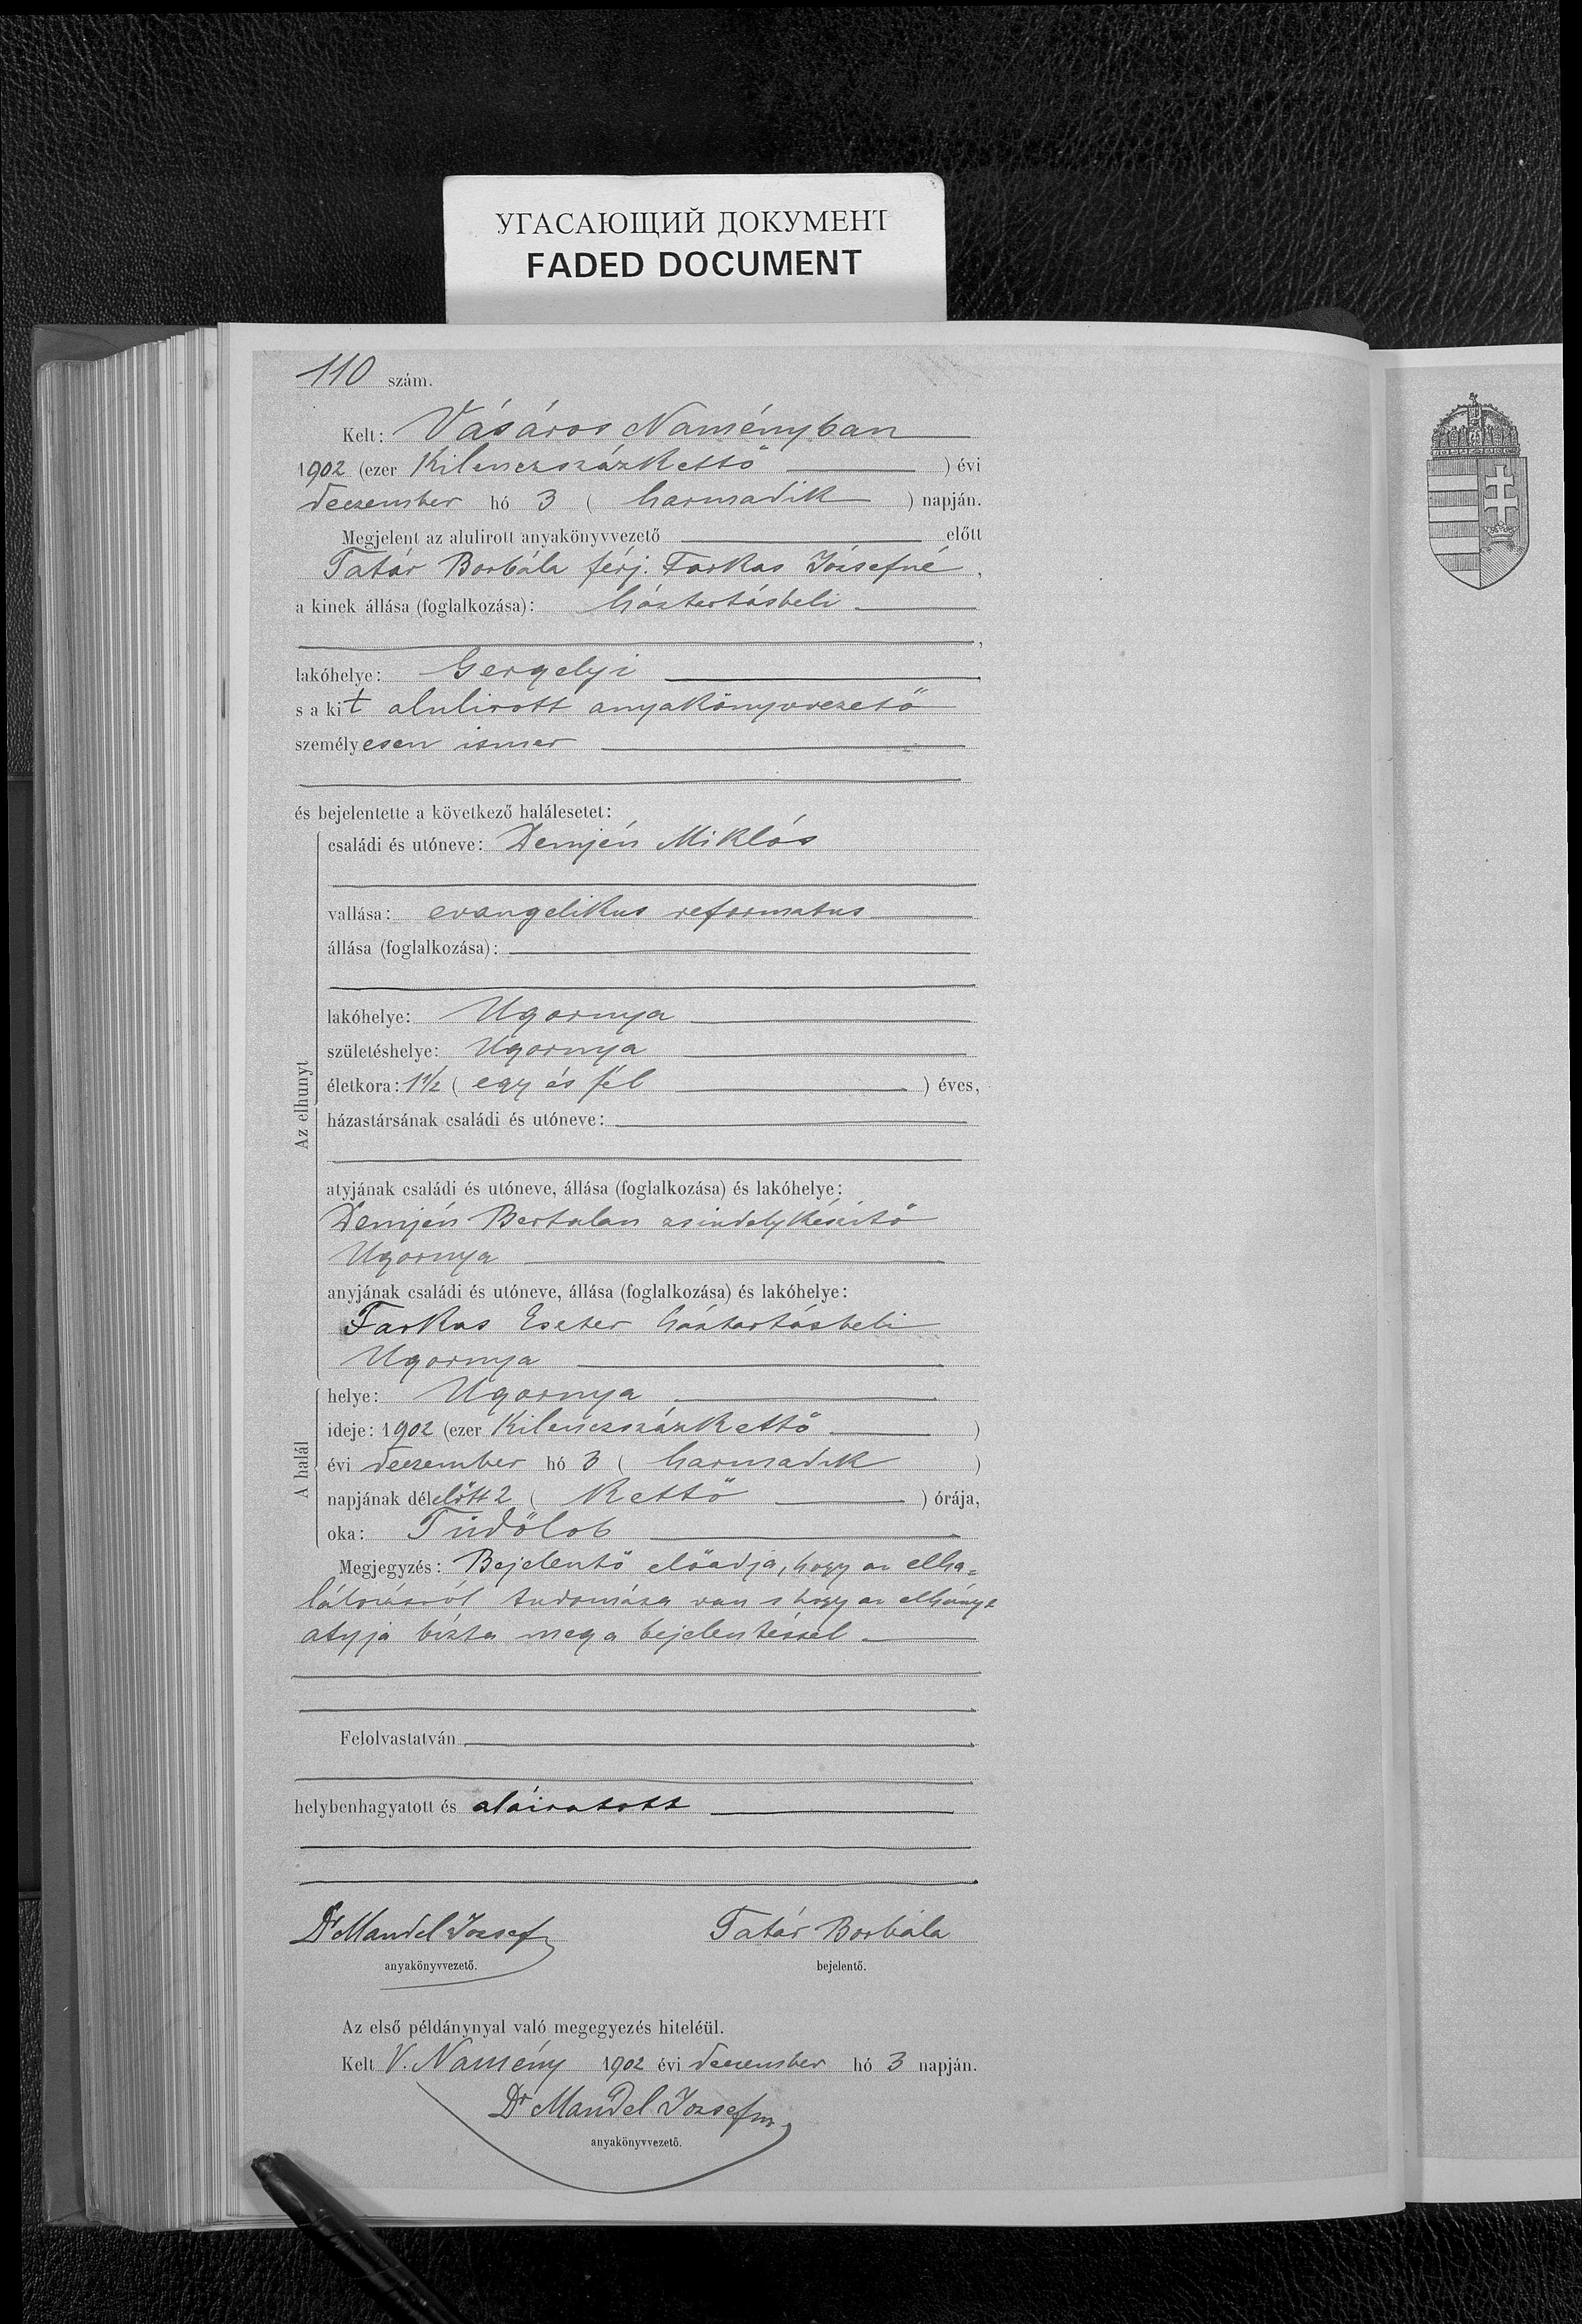 УГАСАЮЩИЙ ДОКУМЕНТ
FADED DOCUMENT
110 szám.
Kelt: Vásáros Naményban
1902 (ezer Kilenczszázkettő) évi
deczember hó 3 (harmadik) napján.
Megjelent az alulirott anyakönyvvezető előtt
Tatár Borbála férj. Farkas Józsefné,
a kinek állása (foglalkozása): háztartásbeli
,
lakóhelye: Gergelyi
s a kit alulirott anyakönyvvezető
személyesen ismer
és bejelentette a következő halálesetet:
Az elhunyt
családi és utóneve: Demjén Miklós
vallása: evangelikus reformatus
állása (foglalkozása):
lakóhelye: Ugornya
születéshelye: Ugornya
életkora: 1 1/2 (egy és fél) éves,
házastársának családi és utóneve:
atyjának családi és utóneve, állása (foglalkozása) és lakóhelye:
Demjén Bertalan zsindelykészítő
Ugornya
anyjának családi és utóneve, állása (foglalkozása) és lakóhelye:
Farkas Eszter háztartásbeli
Ugornya
A halál
helye: Ugornya
ideje: 1902 (ezer Kilenczszázkettő)
évi deczember hó 3 (harmadik)
napjának délelőtt 2 (Kettő) órája,
oka: Tüdőlob
Megjegyzés: Bejelentő előadja, hogy az elha=
lálozásról tudomása van s hogy az elhúnyt
atyja bízta meg a bejelentéssel
Felolvastatván
helybenhagyatott és aláiratott
Dr Mandel József
Tatár Borbála
anyakönyvvezető.
bejelentő.
Az első példánynyal való megegyezés hiteléül.
Kelt V. Namény 1902 évi deczember hó 3 napján.
Dr Mandel József
anyakönyvvezető.